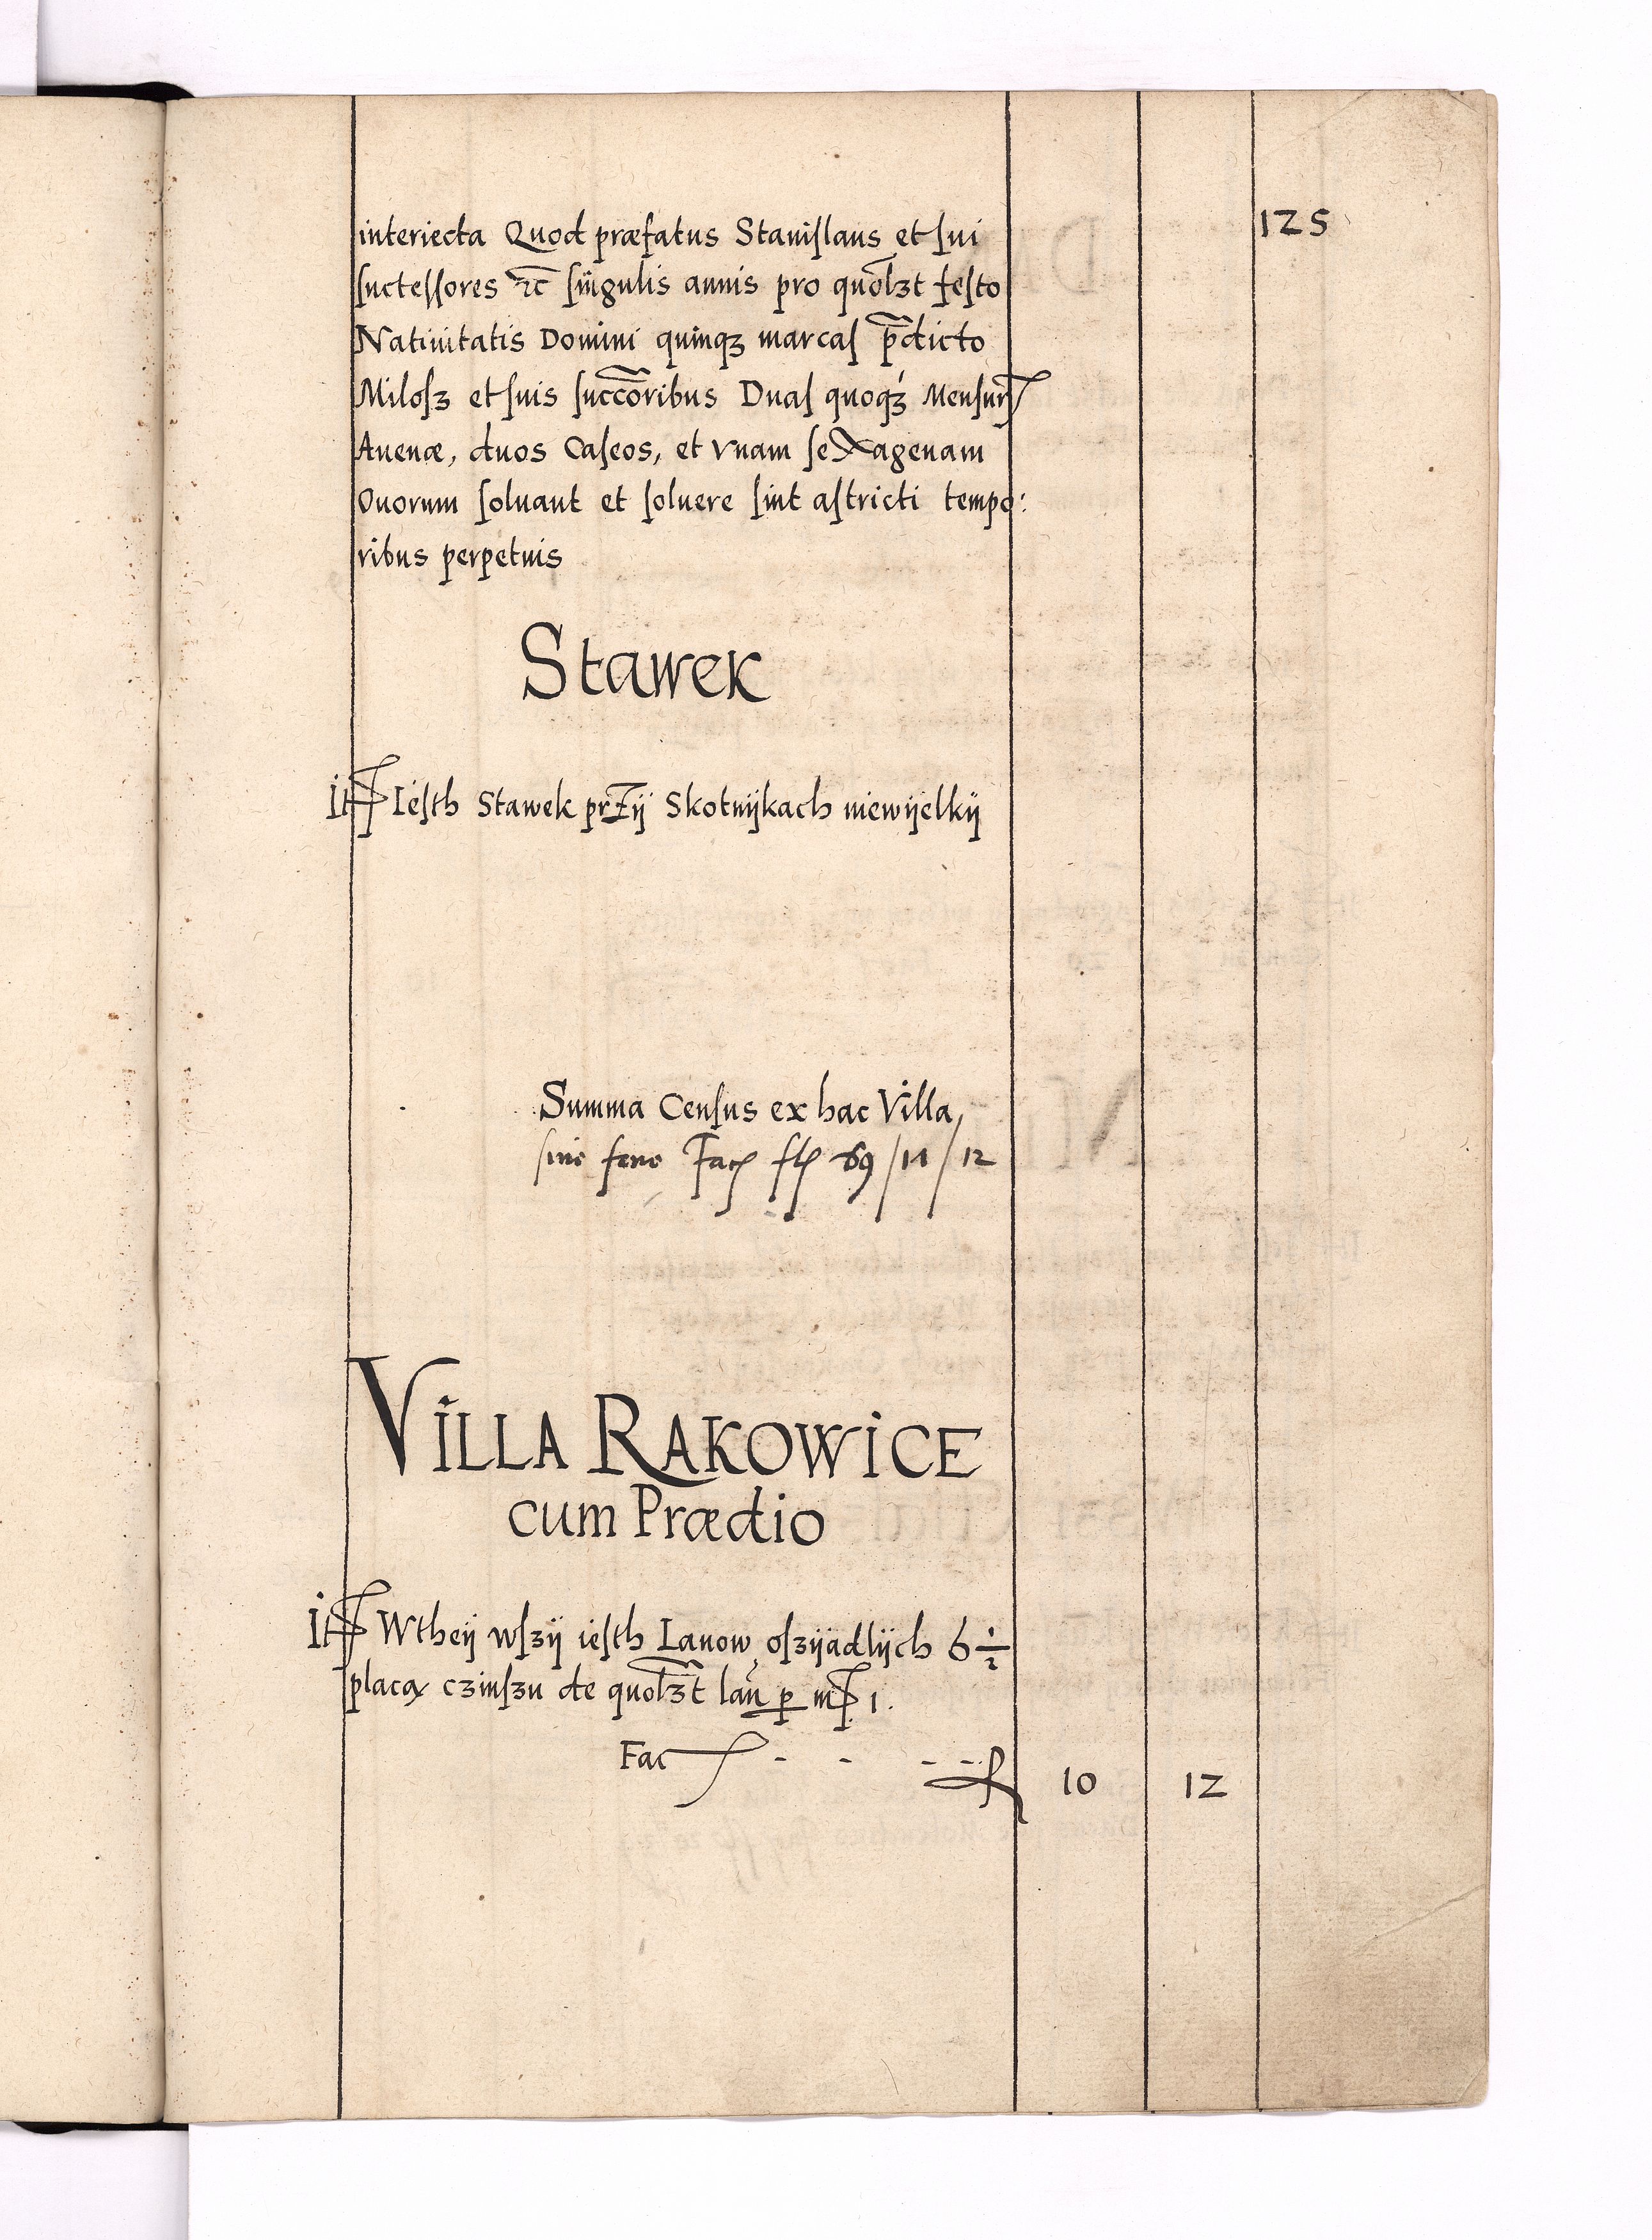 125
interiecta Quod præfatus Staniſlaus et ſui
ſucteſſores ꝛc̄ ſingulis annis pro quol̄ꝫt feſto
Natiuitatis Domini quinqꝫ marcaſ p̄dicto
Miloſꝫ et ſuis ſucc̄oribus Duaſ quoqꝫ Menſur
Auenæ, duos Caſeos, et vnam ſeXagenam
Ouorum ſoluant et ſoluere ſint aſtricti tempo:
ribus perpetuis
Stawek
It Ieſth Stawek przÿ Skotnÿkach niewÿelkÿ
Summa Cenſus ex hac Villa,
ſine feno Fac fl 69/11/12
VILLA RAKOWICE
cum Prædio
It Wtheÿ wſzÿ ieſth Lanow oſzÿadlÿch 6 1/2
placą czinſzu de quol̄ꝫt lan̄ p m 1.
Fac - - - - f 10 12